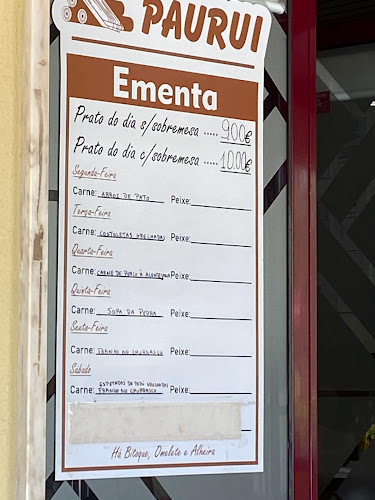 PAURUI
Ementa
Prato do dia s/sobremesa ..... 9.00€
Prato do dia c/sobremesa ..... 10.00€
Segunda-Feira
Carne: ARROZ DE PATO Peixe:
Terça-Feira
Carne: COSTOLETAS GRELHADAS Peixe:
Quarta-Feira
Carne: CARNE DE PORCO À ALENTEJANA Peixe:
Quinta-Feira
Carne: SOPA DA PEDRA Peixe:
Sexta-Feira
Carne: FRANGO NO CHURRASCO Peixe:
Sábado
ESPETADAS DE PERÚ GRELHADAS
Carne: FRANGO NO CHURRASCO Peixe:
Há Bitoque, Omelete e Alheira